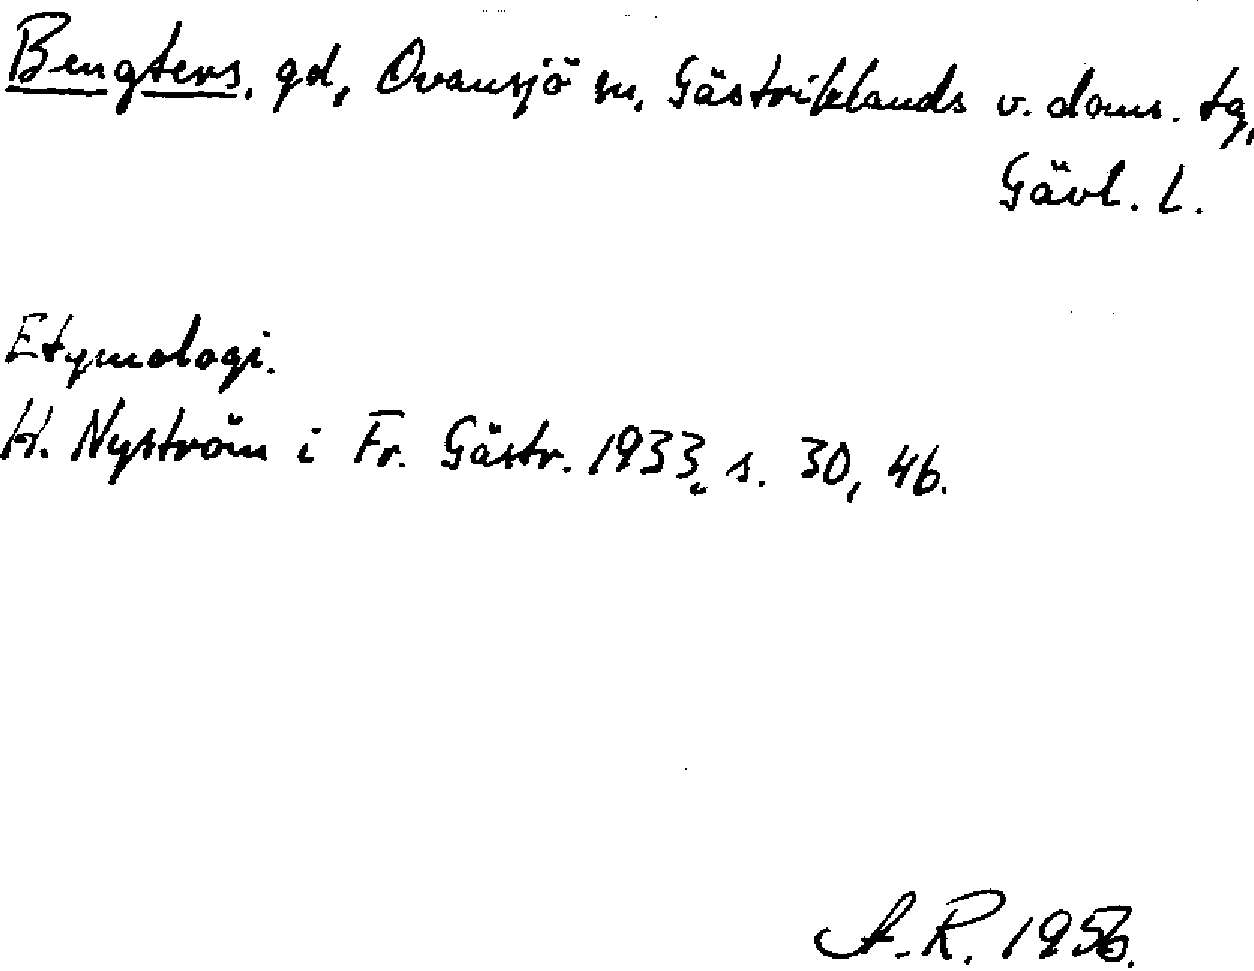 Bengters, gd, Ovansjö sn, Gästriklands v. doms. tg,
Gävl. L.
Etymologi.
H. Nyström i Fr. Gästr. 1933, s. 30, 46.
A.R. 1956.